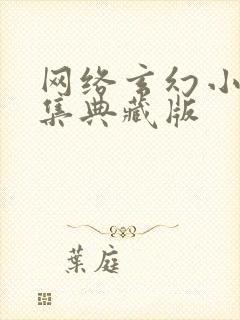 网络玄幻小
集典藏版
葉庭